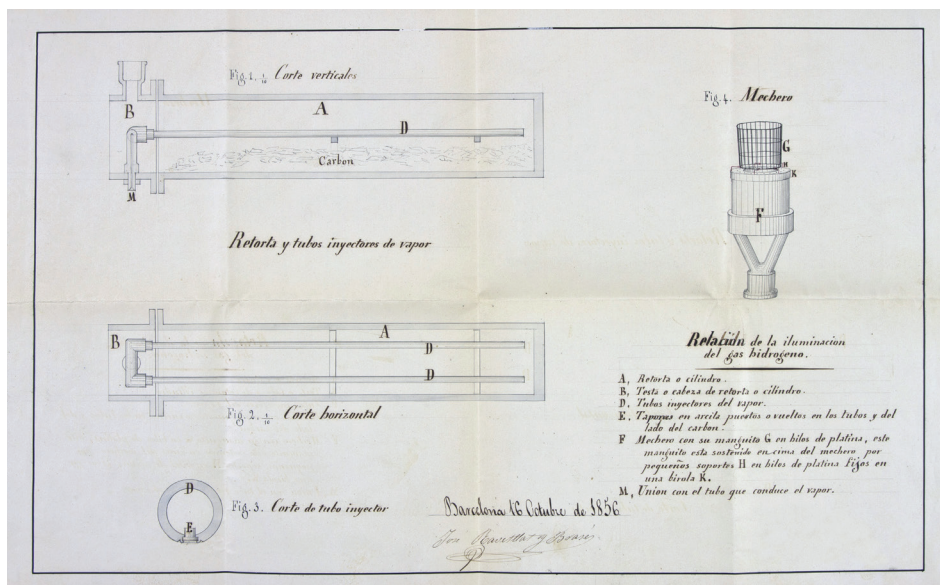 Fig. 1. 1/10 Corte verticales
B
A
D
Carbon
M
Retorta y tubos inyectores de vapor
B
A
D
D
Fig. 2. 1/10 Corte horizontal
D
E
Fig. 3. Corte de tubo inyector
Fig. 4. Mechero
G
H
K
F
Relation de la iluminacion
del gas hidrogeno.
A, Retorta o cilindro.
B, Testa o cabeza de retorta o cilindro.
D, Tubos inyectores del vapor.
E, Tapones en arcita puestos o vueltos en los tubos y del
lado del carbon.
F Mechero con su manguito G en hilos de platina, este
manguito esta sostenido en cima del mechero por
pequeños soportes H en hilos de platina fijos en
una birola K.
M, Union con el tubo que conduce el vapor.
Barcelona 16 Octubre de 1856